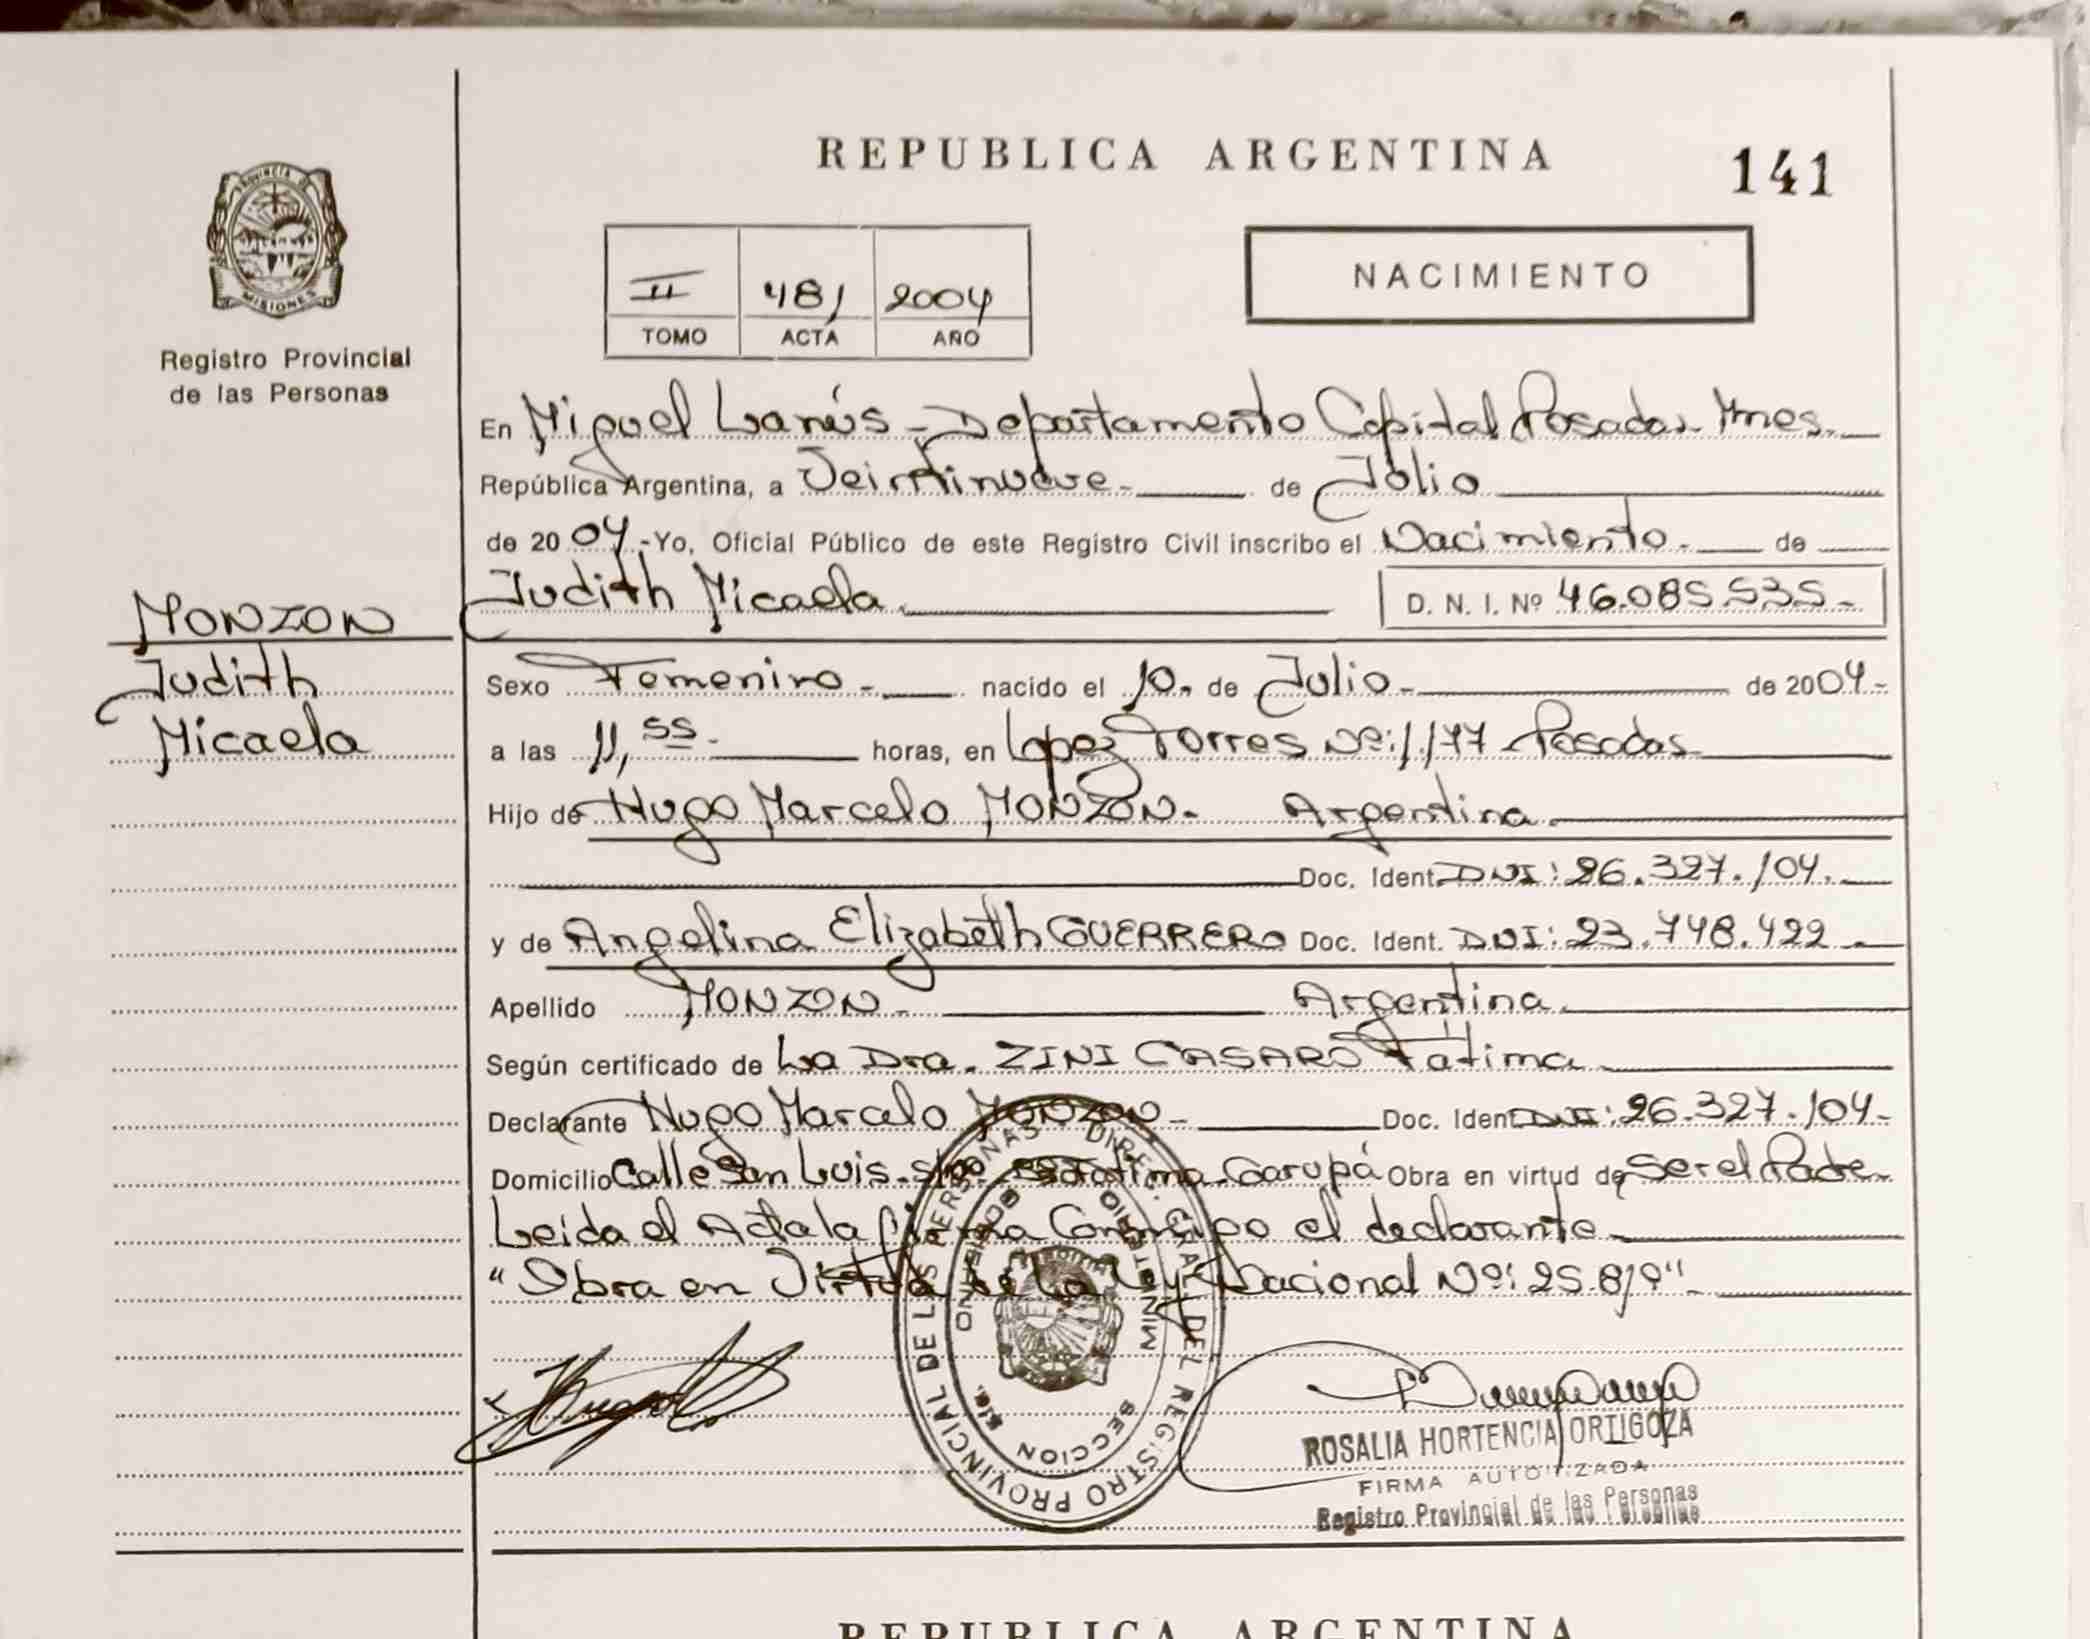 REPUBLICA ARGENTINA
141
PROVINCIA DE
MISIONES
Registro Provincial
de las Personas
II 481 2004
TOMO ACTA AÑO
NACIMIENTO
En Miguel Lanús - Departamento Capital Posadas Mnes.
República Argentina, a Veintinueve - de Julio
de 2004 - Yo, Oficial Público de este Registro Civil inscribo el Nacimiento - de
Judith Micaela D. N. I. Nº 46.085.535-
MONZON
Judith
Micaela
Sexo Femenino - nacido el 10 - de Julio - de 2004 -
a las 11,55 - horas, en Lopez Torres Nº: 1.177 Posadas
Hijo de Hugo Marcelo MONZON - Argentina
Doc. Ident. DNI: 26.327.104.
y de Angelina Elizabeth GUERRERO Doc. Ident. DNI: 23.748.422 -
Apellido MONZON - Argentina
Según certificado de La Dra. ZINI CASARO Fátima
Declarante Hugo Marcelo MONZON - Doc. Ident. DNI: 26.327.104 -
Domicilio Calle San Luis - Fatima - Garupá Obra en virtud de Ser el Padre
Leida el Acta la firma Conmigo el declarante
"Obra en Virtud de la Ley Nacional Nº: 25.819" -
DIREC. GRAL DEL REGISTRO PROVINCIAL DE LAS PERSONAS
MINISTERIO GOBIERNO
SECCION
ROSALIA HORTENCIA ORTIGOZA
FIRMA AUTORIZADA
Registro Provincial de las Personas
REPUBLICA ARGENTINA